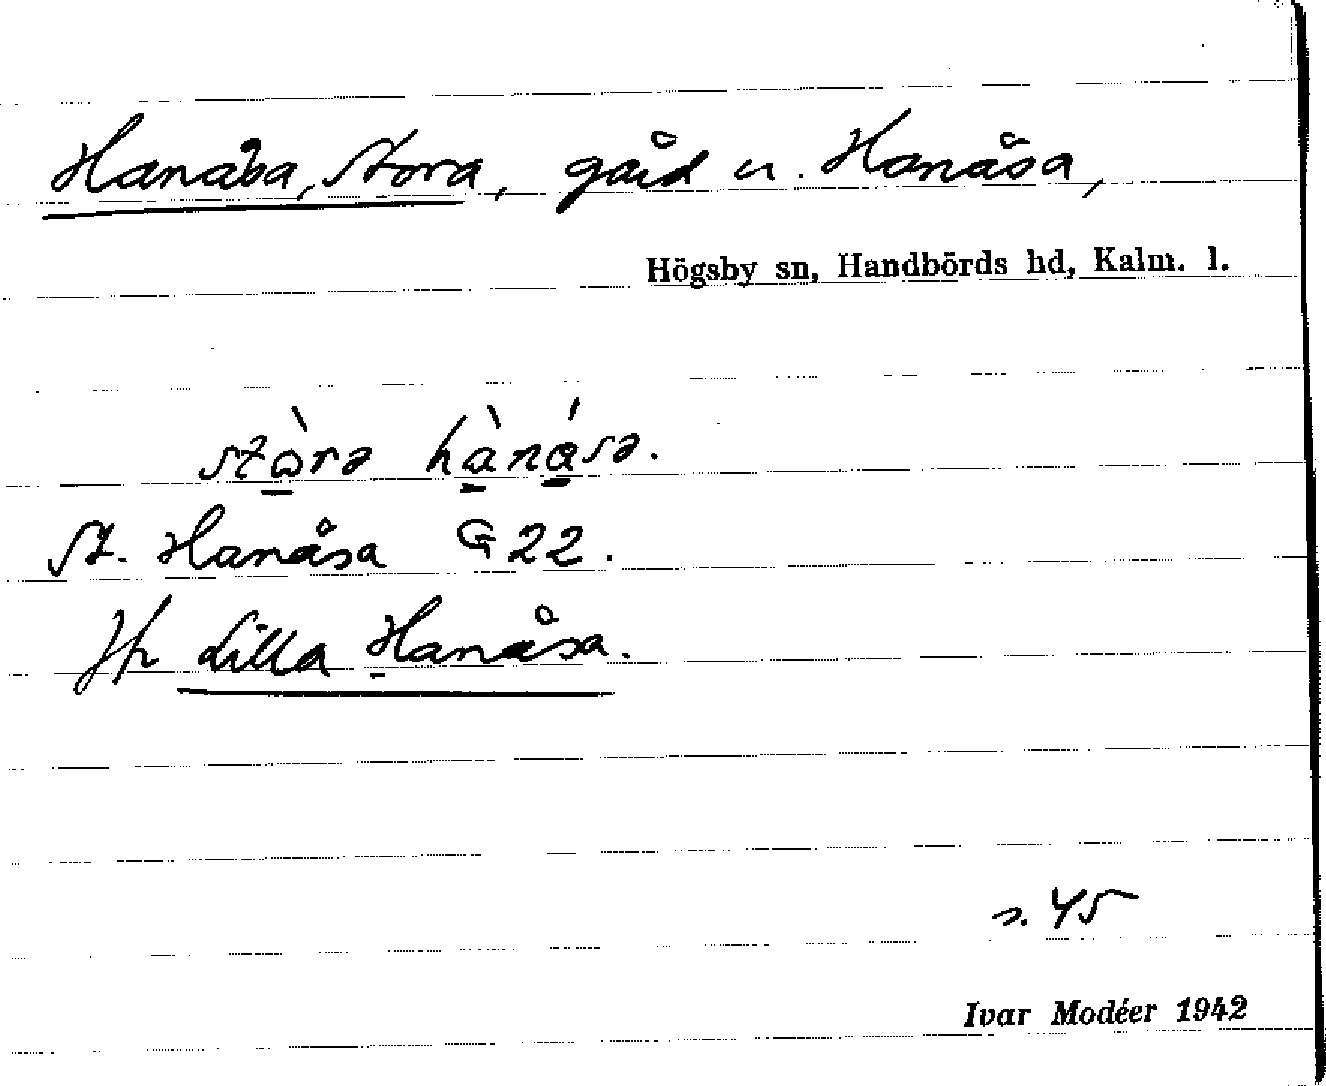 Hanåsa, Stora, gård u. Hanåsa,
Högsby sn, Handbörds hd, Kalm. l.
stò̱rə hà̱ná̱sə.
St. Hanåsa G 22.
Jfr Lilla Hanåsa.
s. 45
Ivar Modéer 1942